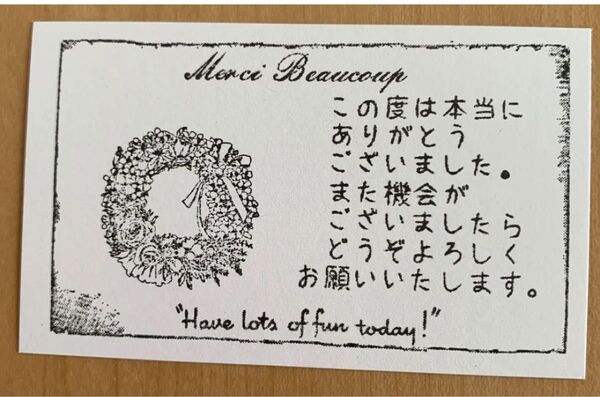 Merci Beaucoup
この度は本当に
ありがとう
ございました。
また機会が
ございましたら
どうぞよろしく
お願いいたします。
"Have lots of fun today!"